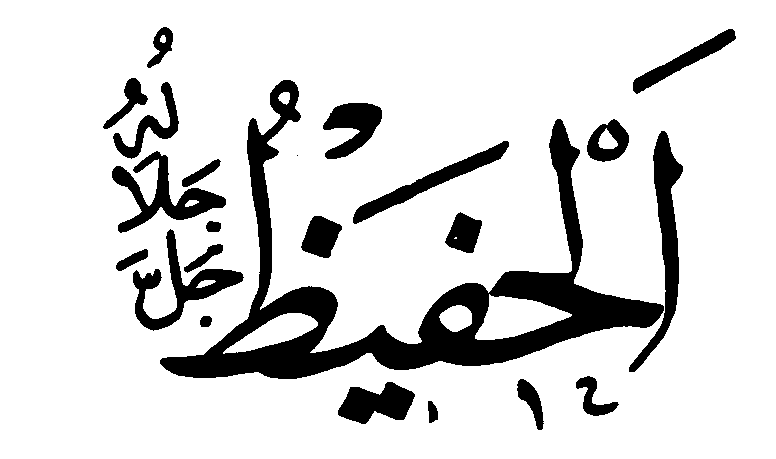 اَلْحَفِيظُ
جَلَّ جَلَالُهُ